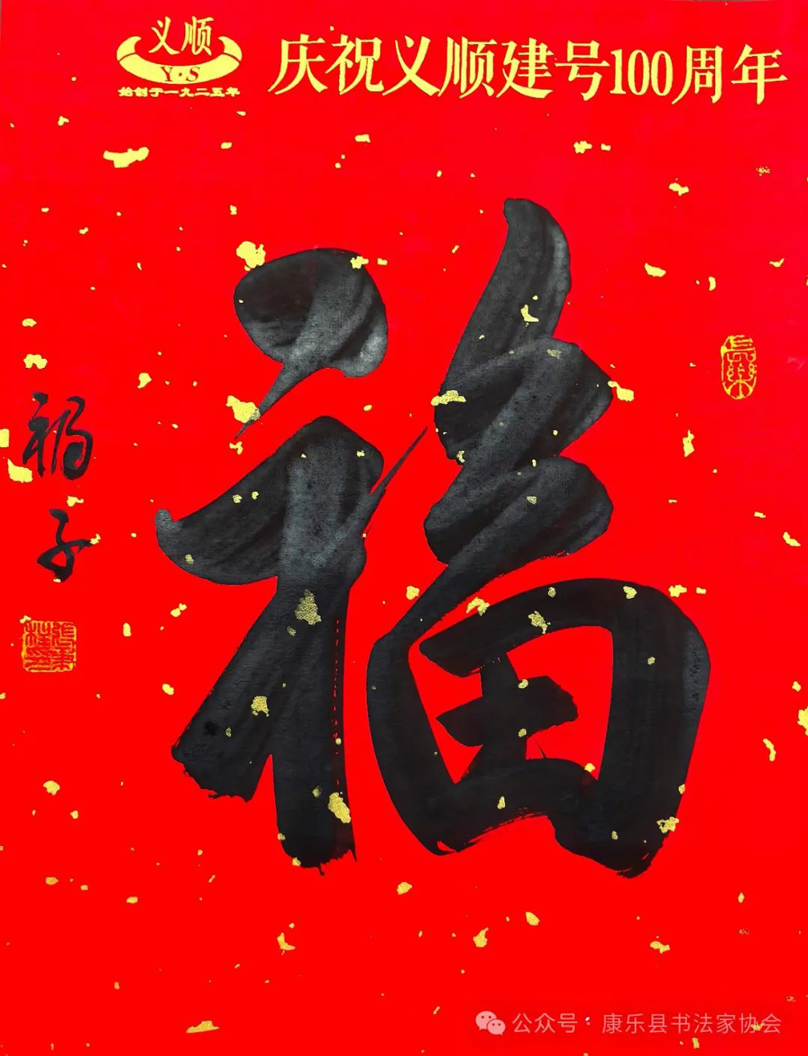 义顺
Y·S
始创于一九二五年
庆祝义顺建号100周年
福
长乐
张秉
桂印
公众号·康乐县书法家协会